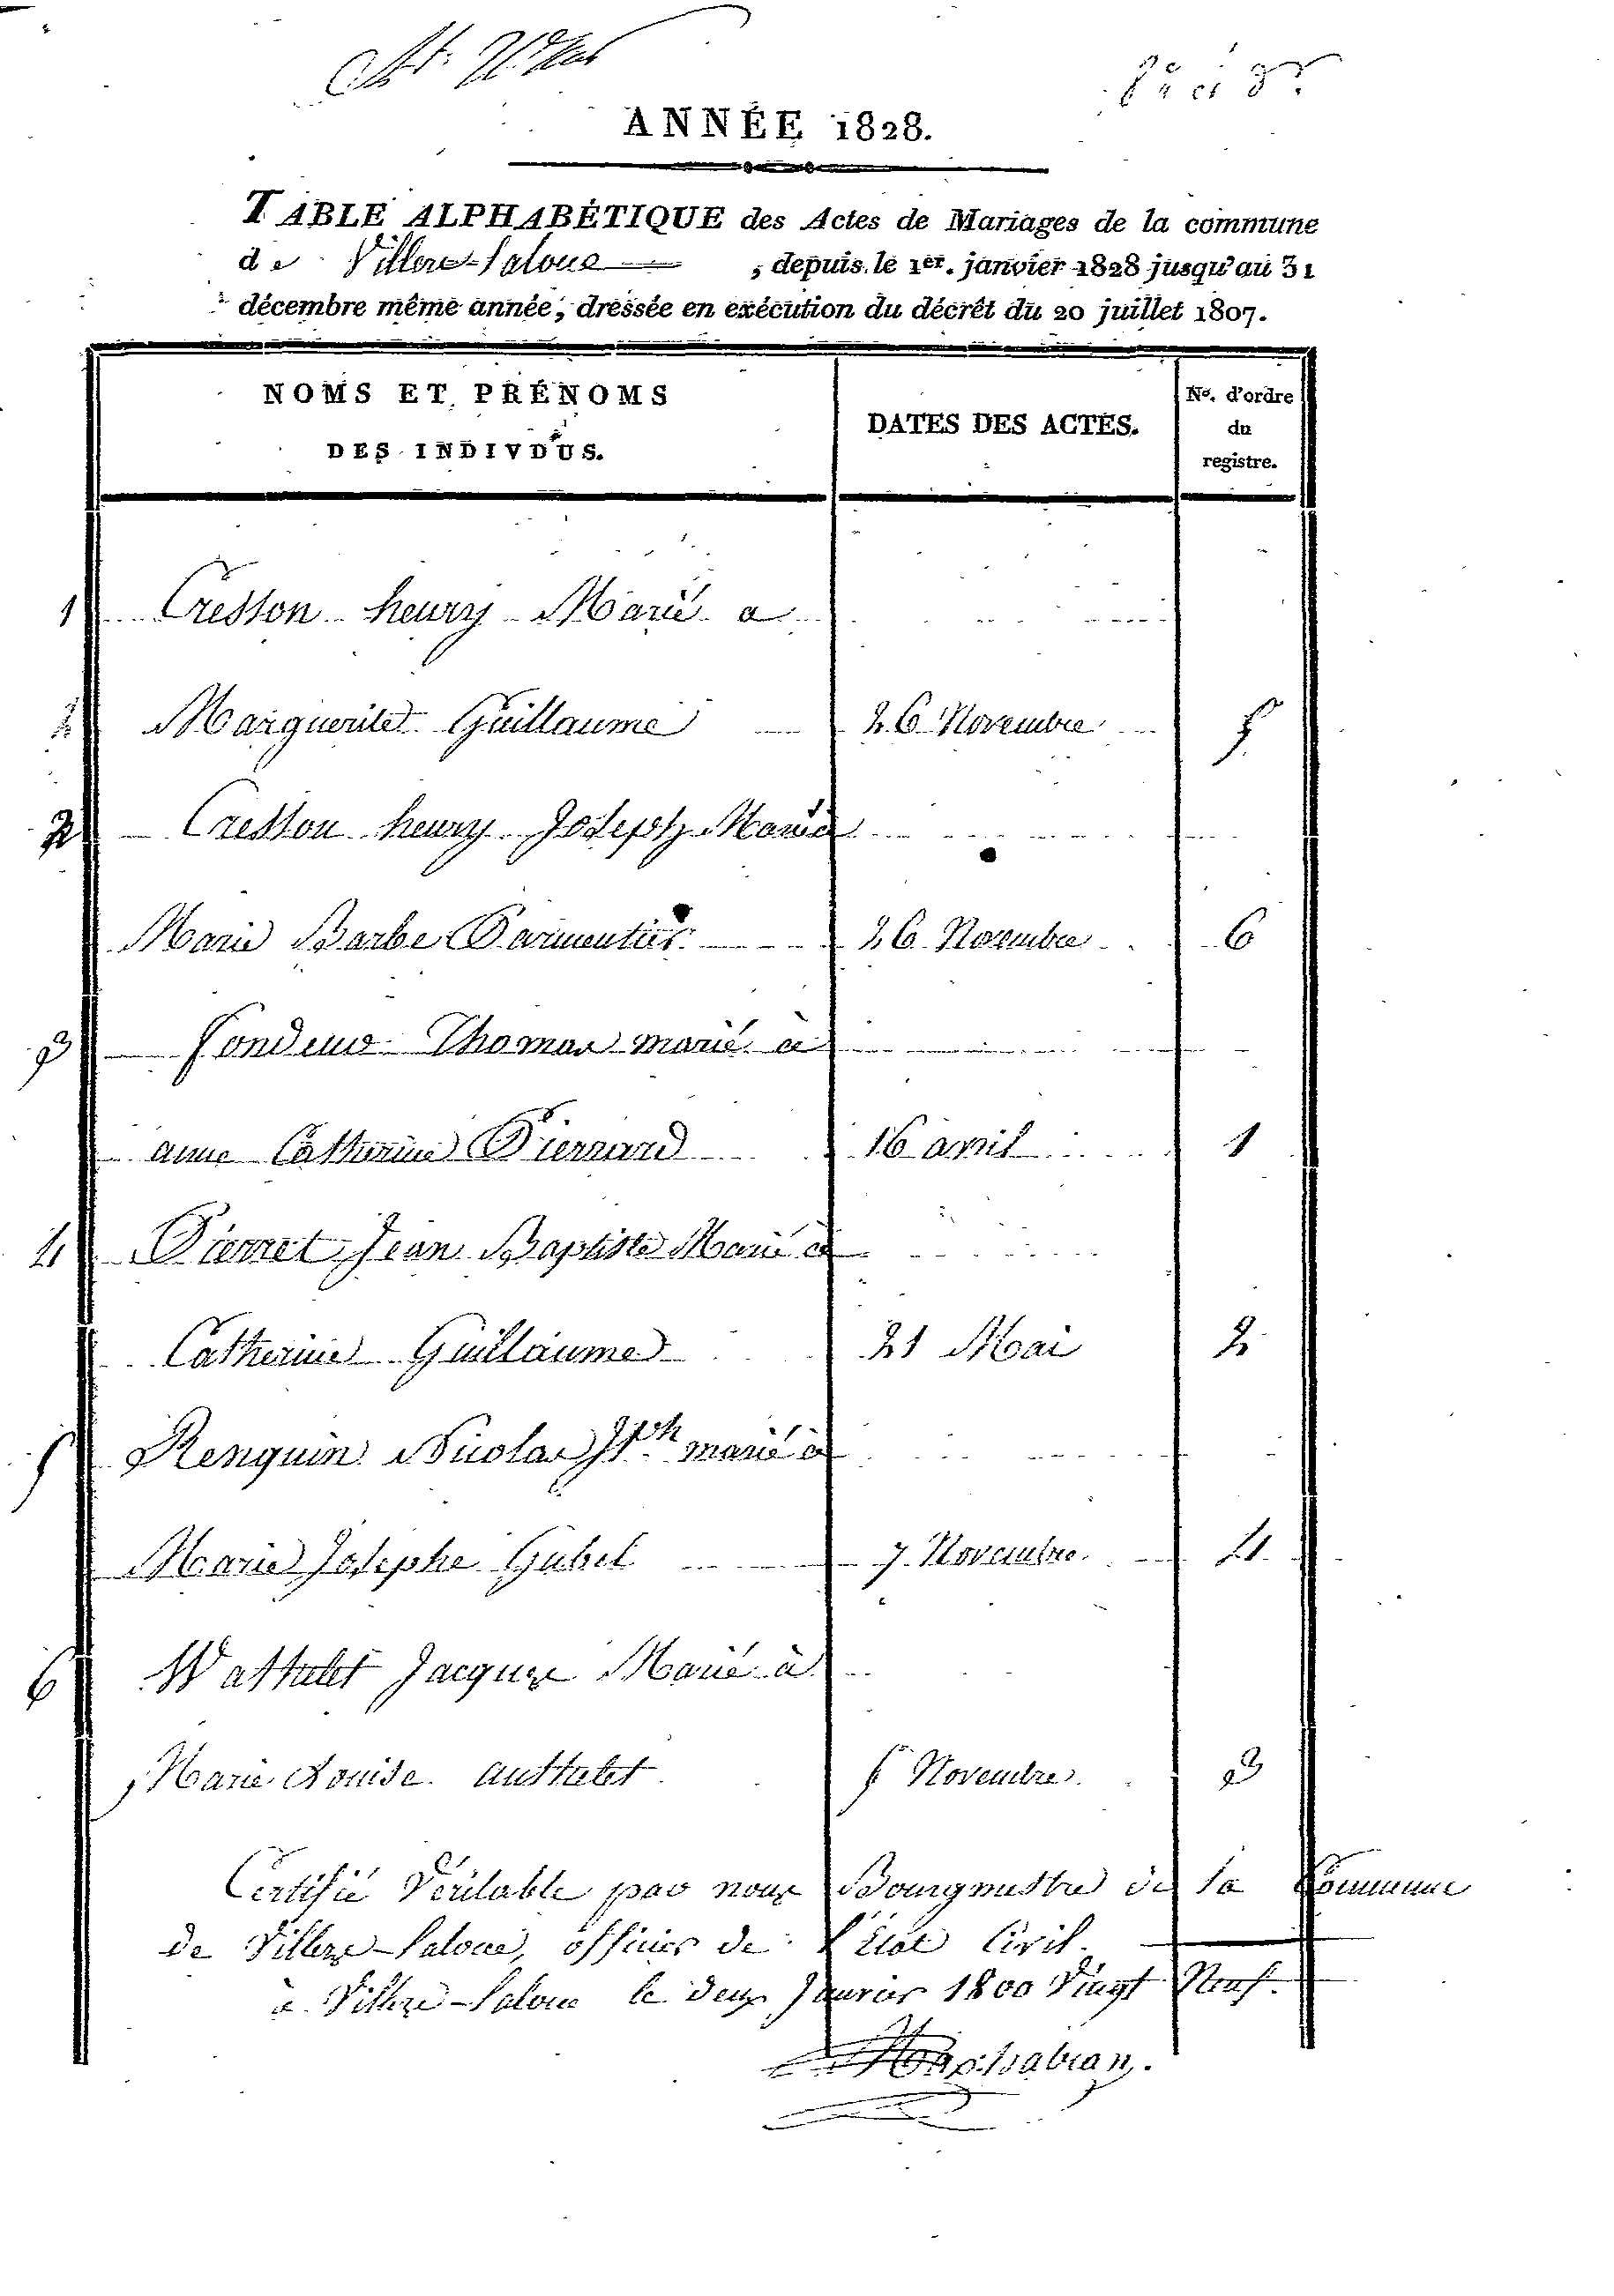 ANNÉE 1828.
TABLE ALPHABÉTIQUE des Actes de Mariages de la commune
de Villers-Laloue, depuis le 1er. janvier 1828 jusqu'au 31
décembre même année, dressée en exécution du décrêt du 20 juillet 1807.
NOMS ET PRÉNOMS
DES INDIVDUS.
DATES DES ACTES.
No. d'ordre
du
registre.
1 Cresson henry Marié a
2 Marguerite Guillaume 26 Novembre 5
2 Cresson henry Joseph Marié
Marie Barbe Parmentier 26 Novembre 6
3 Fondeur Thomas marié à
anne Catherine Pierrard 16 avril 1
4 Pierret Jean Baptiste Marié à
Catherine Guillaume 21 Mai 2
5 Renquin Nicolas Jph marié à
Marie Josephe Gubel 7 Novembre 4
6 Wathelet Jacques Marié à
Marie Louise authelet 5 Novembre 3
Certifié Véritable par nous Bourgmestre de la Commune
de Villers-Laloue, officier de l'État Civil.
à Villers-Laloue le deux Janvier 1800 Vingt Neuf.